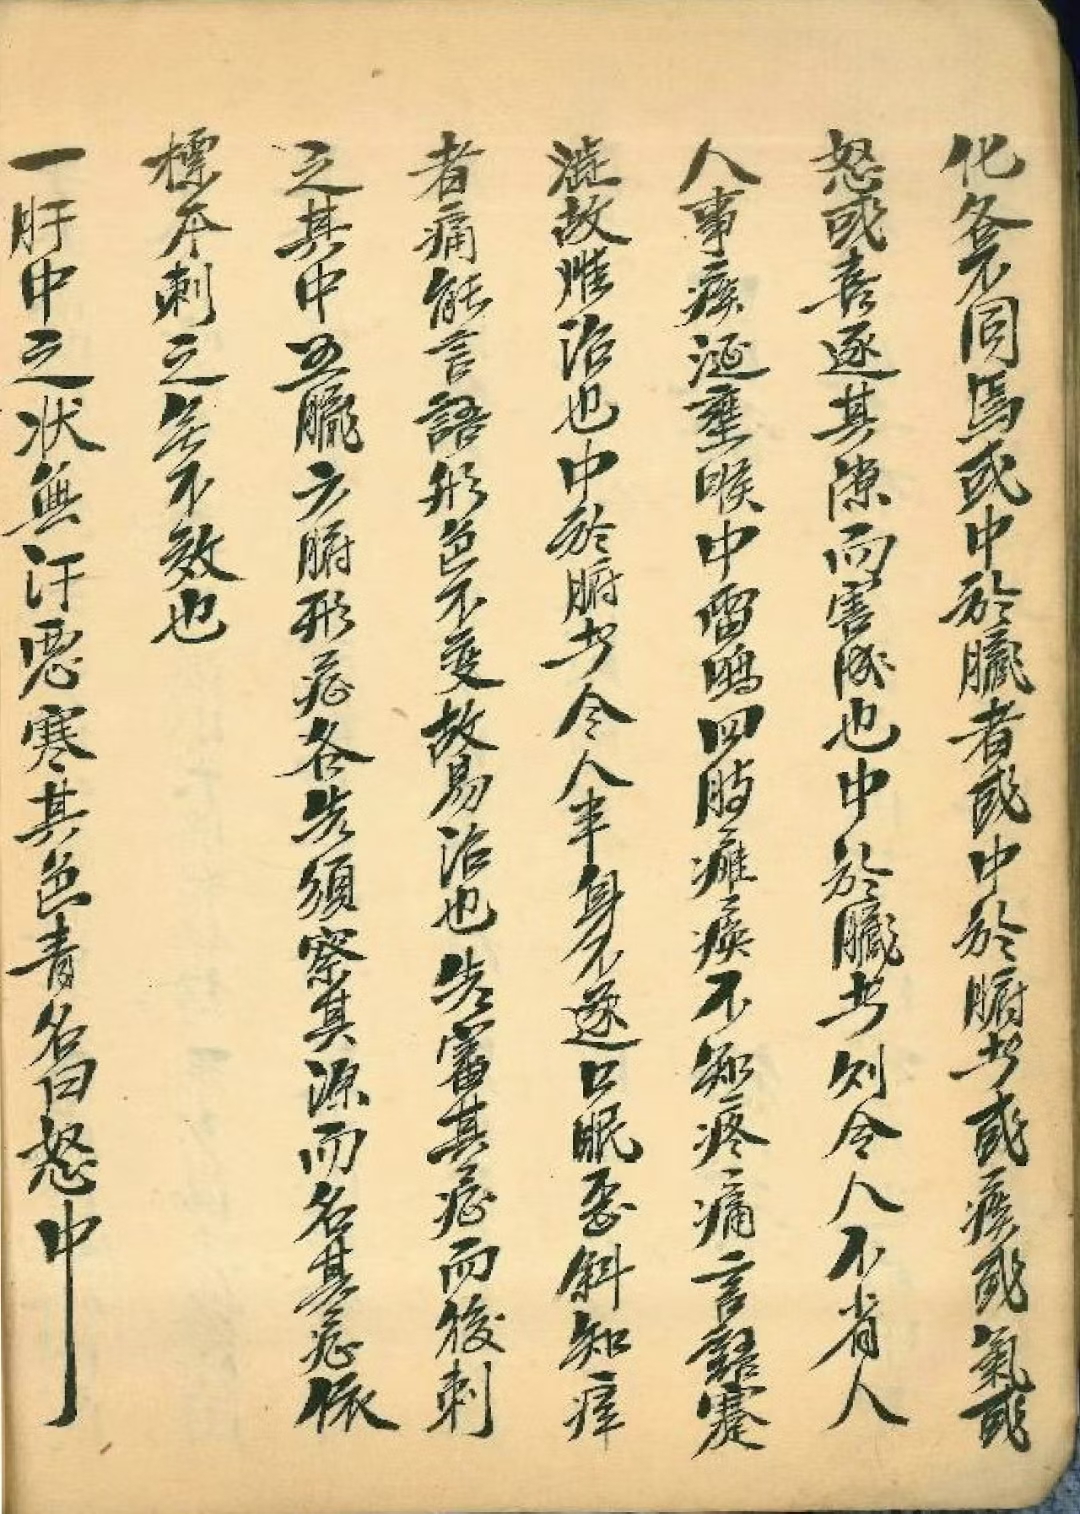 化各不同焉或中於臟者或中於腑者或痰或氣或
怒或喜逐其隙而害成也中於臟者则令人不省人
人事痰涎壅喉中雷鳴四肢癱瘓不知疼痛言語蹇
澁故难治也中於腑者令人半身不遂口眼歪斜知痒
者痛能言語形色不变故易治也先審其症而後刺
之其中五臟六腑形症各先須察其源而名其症依
標本刺之無不效也
一肝中之状無汗惡寒其色青名曰怒中